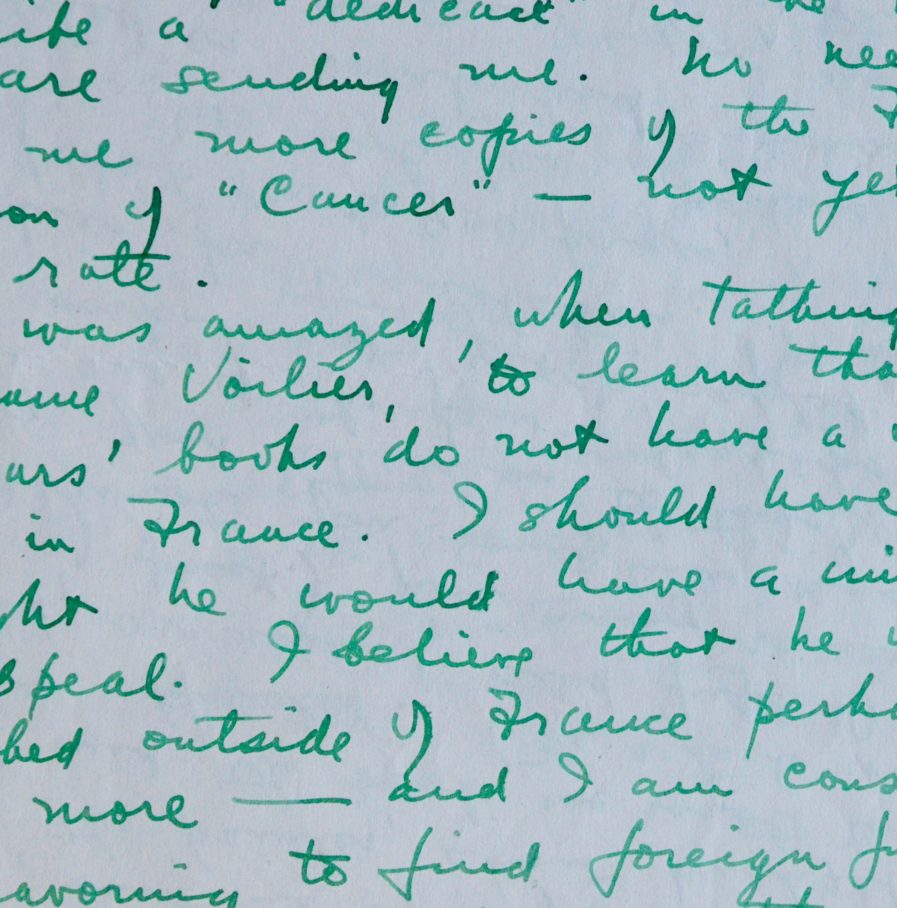 a "dedicace" in
are sending me. No nee
me more copies of the F
on of "Cancer" — not ye
rate.
was amazed, when tathing
ame Voilier, to learn tha
urs' books do not have a
in France. I should have
ght he would have a uni
ppeal. I believe that he
hed outside of France perha
more — and I am cons
avoring to find foreign fu